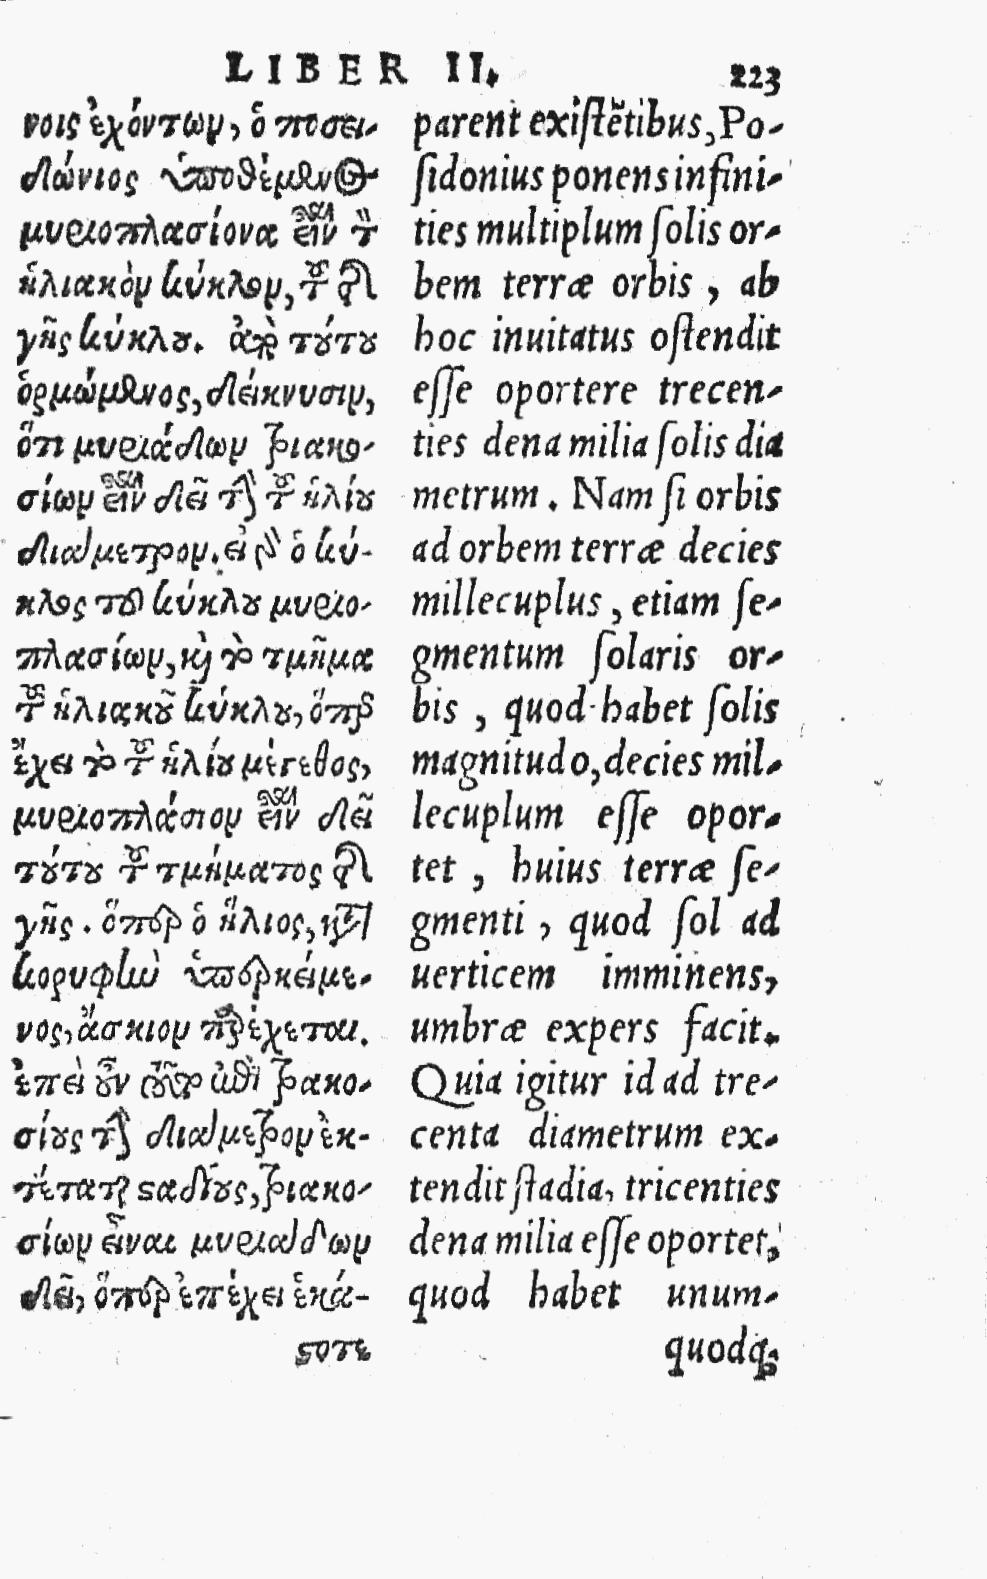 LIBER II. 223
νοις ἐχόντων, ὁ ποσει-
δώνιος ὑποθέμενος
μυριοπλασίονα εἶναι τὸν
ἡλιακὸν κύκλον, τοῦ τῆς
γῆς κύκλου. ἀπὸ τούτου
ὁρμώμενος, δείκνυσιν,
ὅτι μυριάδων τριακο-
σίων εἶναι δεῖ τὴν τοῦ ἡλίου
διάμετρον. εἰ γὰρ ὁ κύ-
κλος τοῦ κύκλου μυριο-
πλασίων, καὶ τὸ τμῆμα
τοῦ ἡλιακοῦ κύκλου, ὅπερ
ἔχει τὸ τοῦ ἡλίου μέγεθος,
μυριοπλάσιον εἶναι δεῖ
τούτου τοῦ τμήματος τῆς
γῆς. ὅπερ ὁ ἥλιος, κατὰ
κορυφὴν ὑπερκείμε-
νος, ἄσκιον παρέχεται.
ἐπεὶ οὖν τοῦτο ἐπὶ τρακο-
σίους τὴν διάμετρον ἐκ-
τέταται σαδίους, τριακο-
σίων εἶναι μυριάδων
δεῖ, ὅπερ ἐπέχει ἑκά-
στοτε
parent existētibus, Po-
sidonius ponens infini-
ties multiplum solis or-
bem terræ orbis, ab
hoc inuitatus ostendit
esse oportere trecen-
ties dena milia solis dia
metrum. Nam si orbis
ad orbem terræ decies
millecuplus, etiam se-
gmentum solaris or-
bis, quod habet solis
magnitudo, decies mil-
lecuplum esse opor-
tet, huius terræ se-
gmenti, quod sol ad
uerticem imminens,
umbræ expers facit.
Quia igitur id ad tre-
centa diametrum ex-
tendit stadia, tricenties
dena milia esse oportet,
quod habet unum-
quodq;